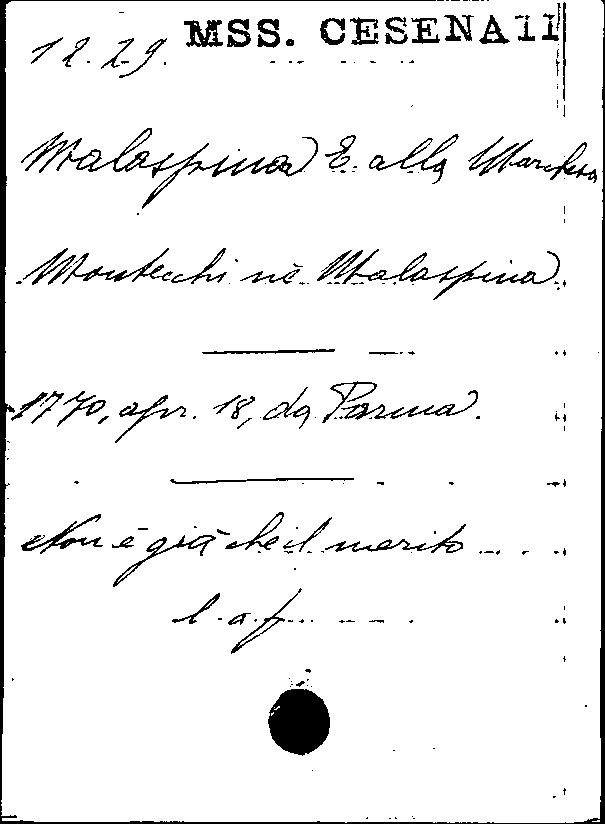 12.29. MSS. CESENA 11
Malaspina E. alla Marchesa
Montecchi nè Malaspina.
1770, apr. 18, da Parma.
Non è già che il merito ....
l. a. f.